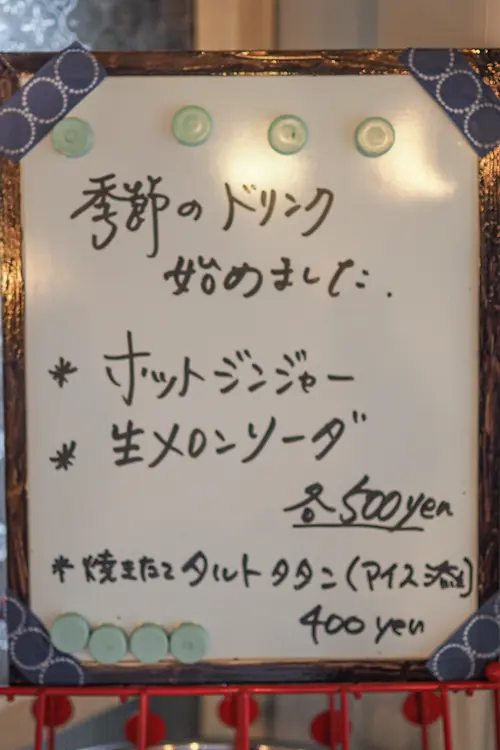 季節のドリンク
始めました.
* ホットジンジャー
* 生メロンソーダ
各500yen
* 焼きたてタルトタタン(アイス添え)
400yen